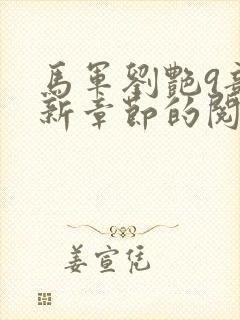 馬軍劉艷9最
新章節的閱
姜宣凭